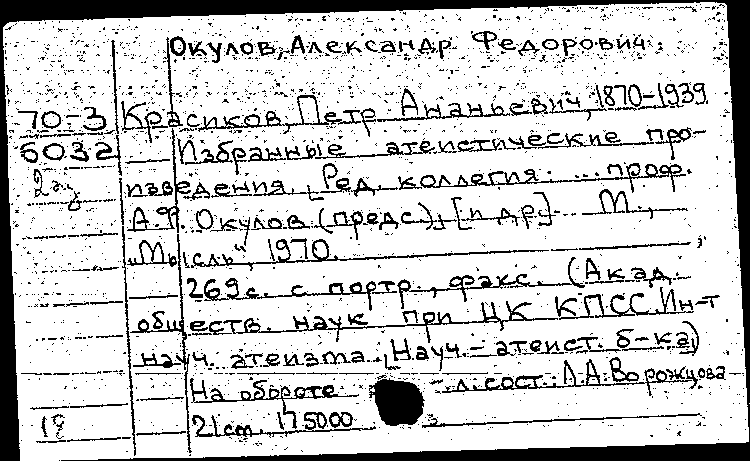 Окулов, Александр Федорович.
70-3 Красиков, Петр Ананьевич, 1870-1939
6032 Избранные атеистические про-
2 изведения. [Ред. коллегия: ... проф.
А.Ф. Окулов (предс.), [и др.] М.,
"Мысль", 1970.
269с. с портр., факс. (Акад.
обществ. наук при ЦК КПСС. Ин-т
науч. атеизма. Науч.-атеист. б-ка)
На обороте л. сост.: А.А. Ворожцова
19 21 cm. 17 5000